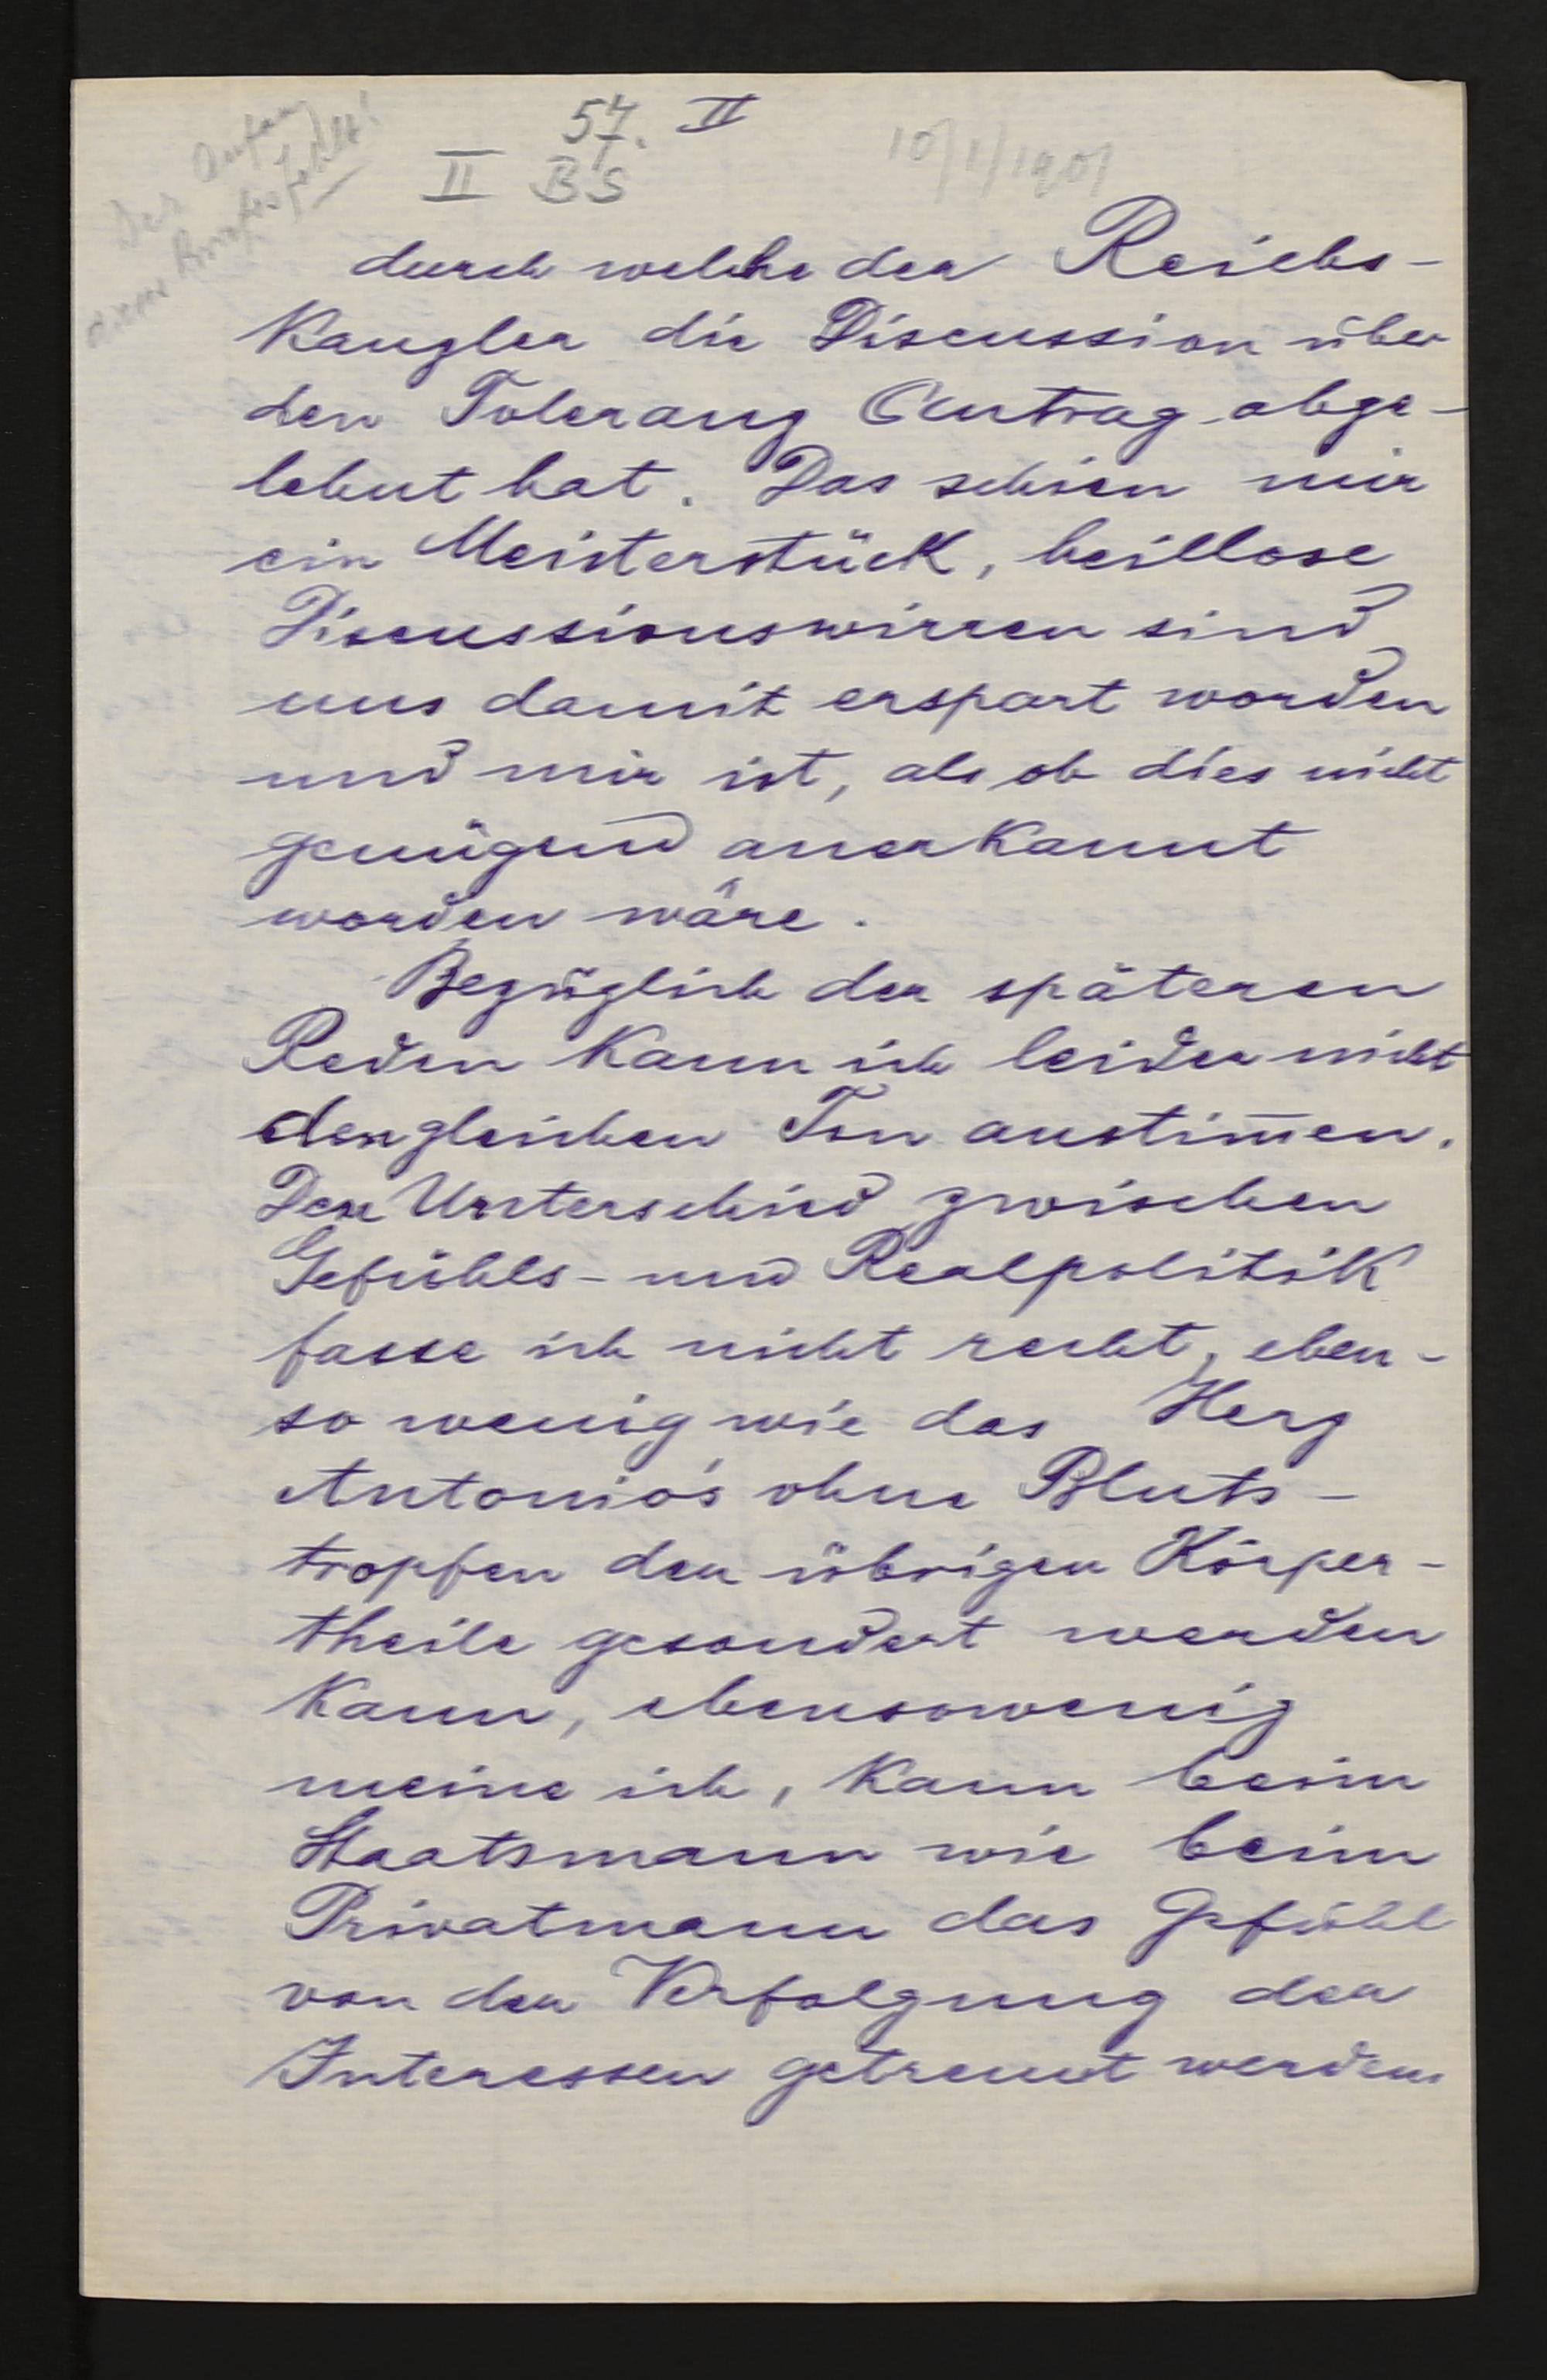 57. II
II BS
10/1/1901
Der Anfang
dieses Briefes fehlt!
durch welche der Reichs-
Kanzler die Discussion über
den Toleranz Antrag abge-
lehnt hat. Das schien mir
ein Meisterstück, heillose
Discussionswirren sind
uns damit erspart worden
und mir ist, als ob dies nicht
genügend anerkannt
worden wäre.
Bezüglich der späteren
Reden kann ich leider nicht
den gleichen Ton anstim̅en.
Den Unterschied zwischen
Gefühls- und Realpolitik
fasse ich nicht recht, eben-
so wenig wie das Herz
Antonio's ohne Bluts-
tropfen der übrigen Körper-
theile gesondert werden
kann, ebensowenig
meine ich, kann beim
Staatsmann wie beim
Privatmann das Gefühl
von der Verfolgung der
Interessen getrennt werden.